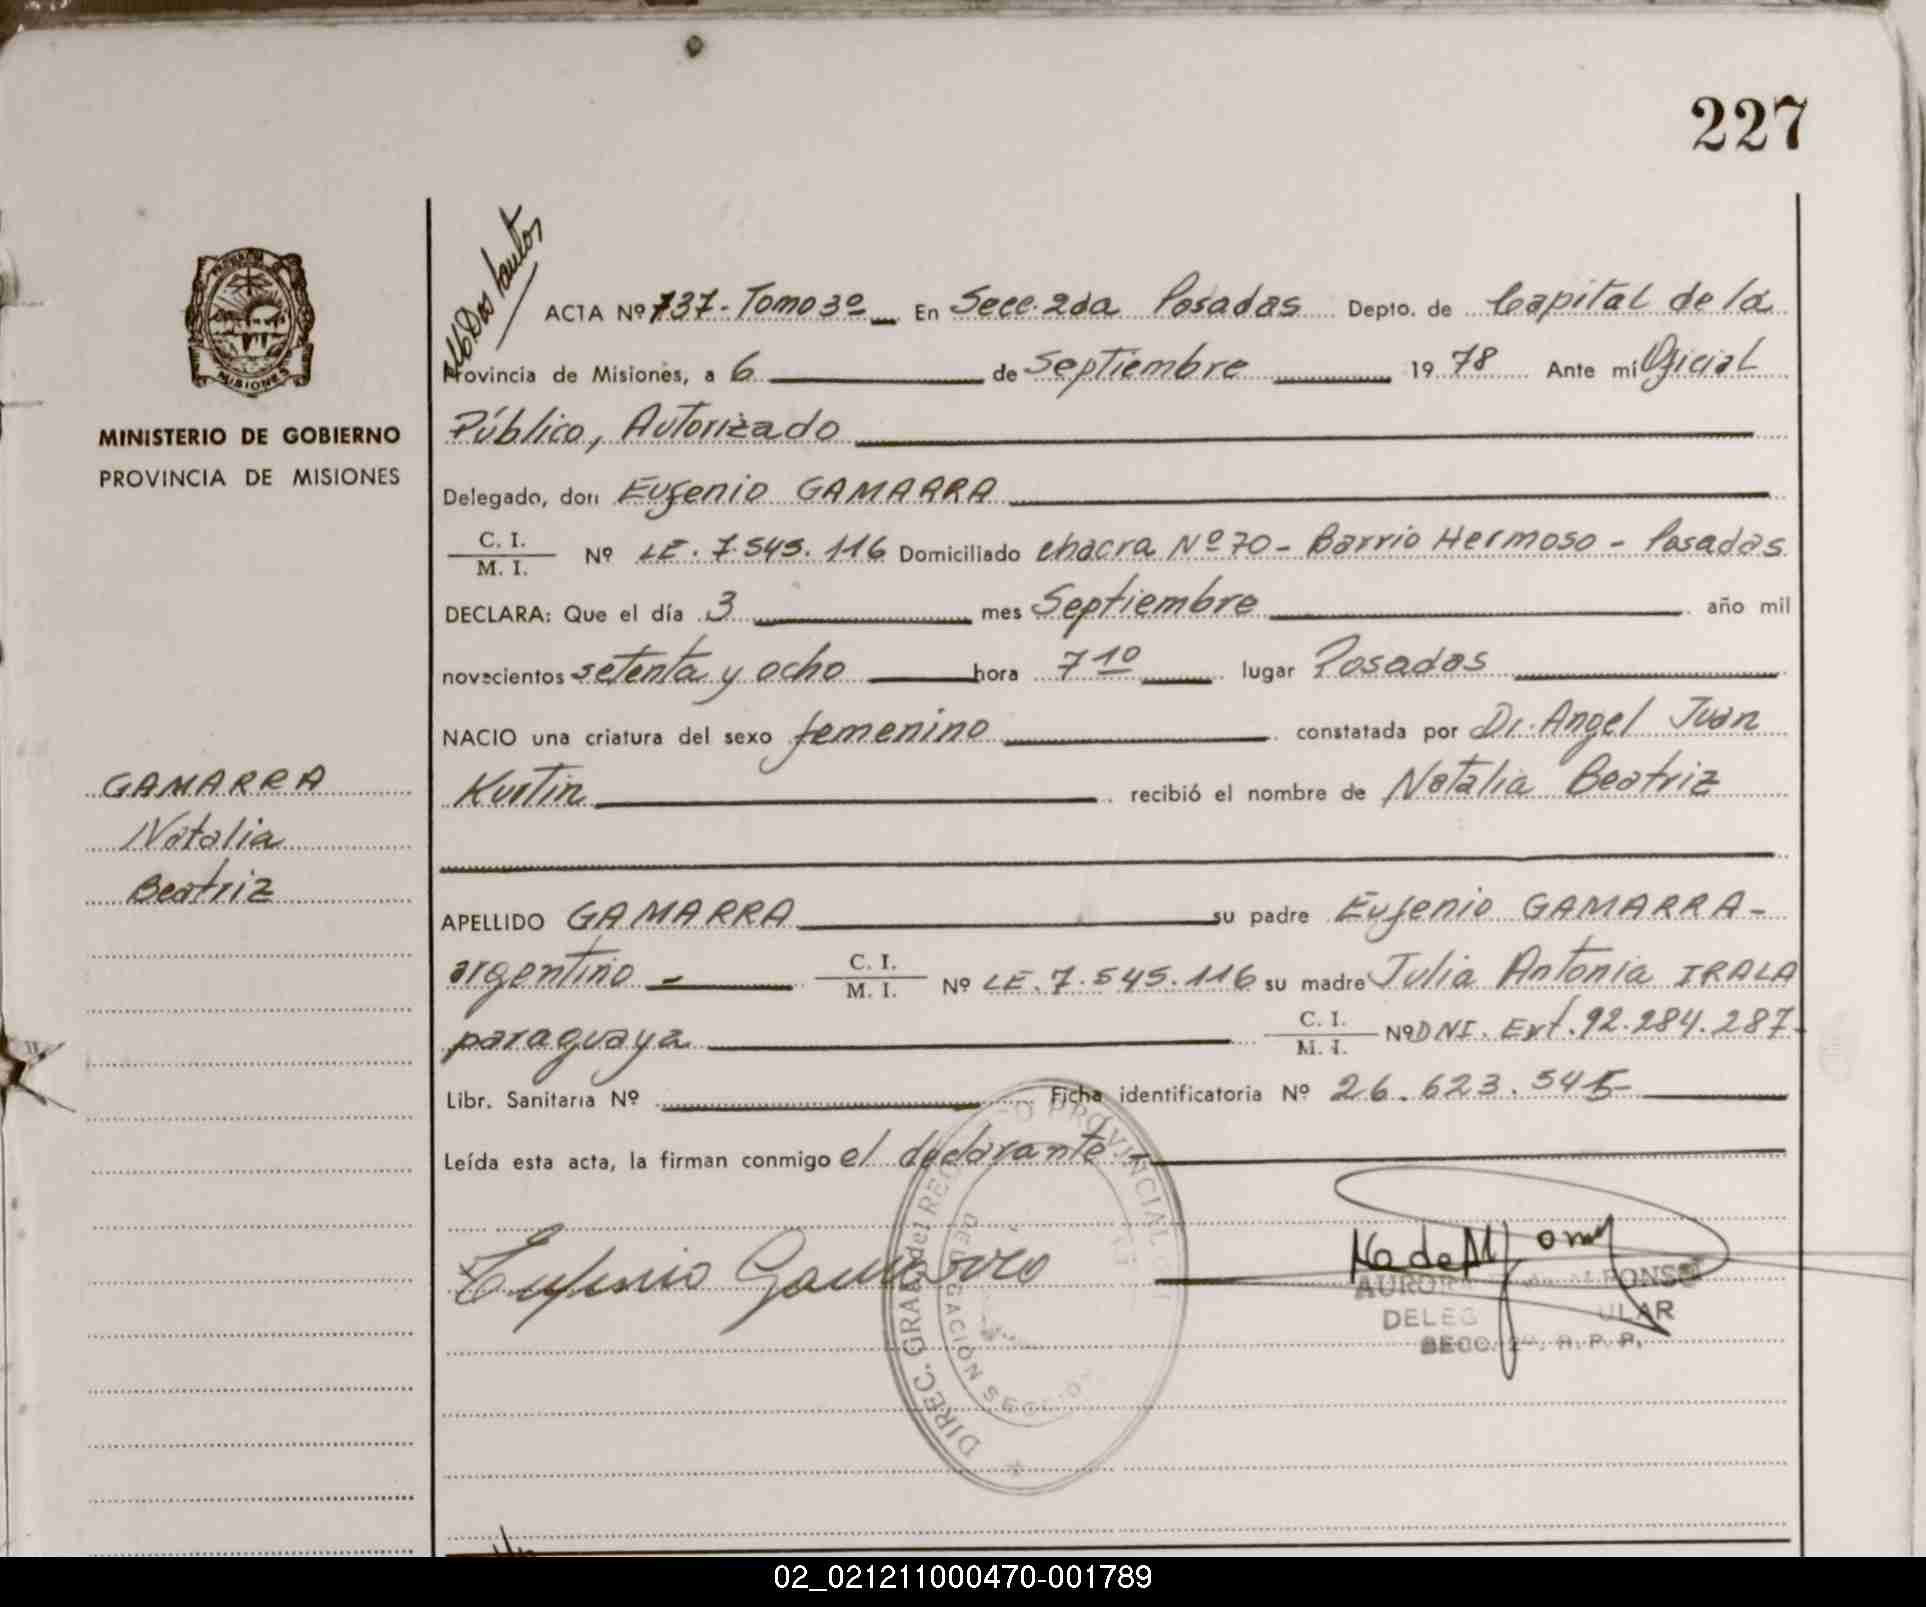 227
MINISTERIO DE GOBIERNO
PROVINCIA DE MISIONES
MISIONES
GAMARRA
Natalia
Beatriz
Dos Santos
ACTA Nº 737 - Tomo 3º En Secc. 2da Posadas Depto. de Capital de la
Provincia de Misiones, a 6 de Septiembre 1978 Ante mi Oficial
Público, Autorizado
Delegado, don Eugenio GAMARRA
C. I.
M. I. Nº LE. 7.545.116 Domiciliado chacra Nº 70 - Barrio Hermoso - Posadas
DECLARA: Que el día 3 mes Septiembre año mil
novecientos setenta y ocho hora 7 10 lugar Posadas
NACIO una criatura del sexo femenino constatada por Dr. Angel Juan
Kurtin recibió el nombre de Natalia Beatriz
APELLIDO GAMARRA su padre Eugenio GAMARRA -
argentino - C. I. M. I. Nº LE. 7.545.116 su madre Julia Antonia IRALA
paraguaya C. I. M. I. Nº DNI. Ext. 92.284.287-
Libr. Sanitaria Nº Ficha identificatoria Nº 26.623.545
Leída esta acta, la firman conmigo el declarante -
Eugenio Gamarra
DIREC. GRAL. del PROVINCIAL
DELEGACIÓN SECCIÓN
SECC. 2ª. R. P. P.
02_021211000470-001789